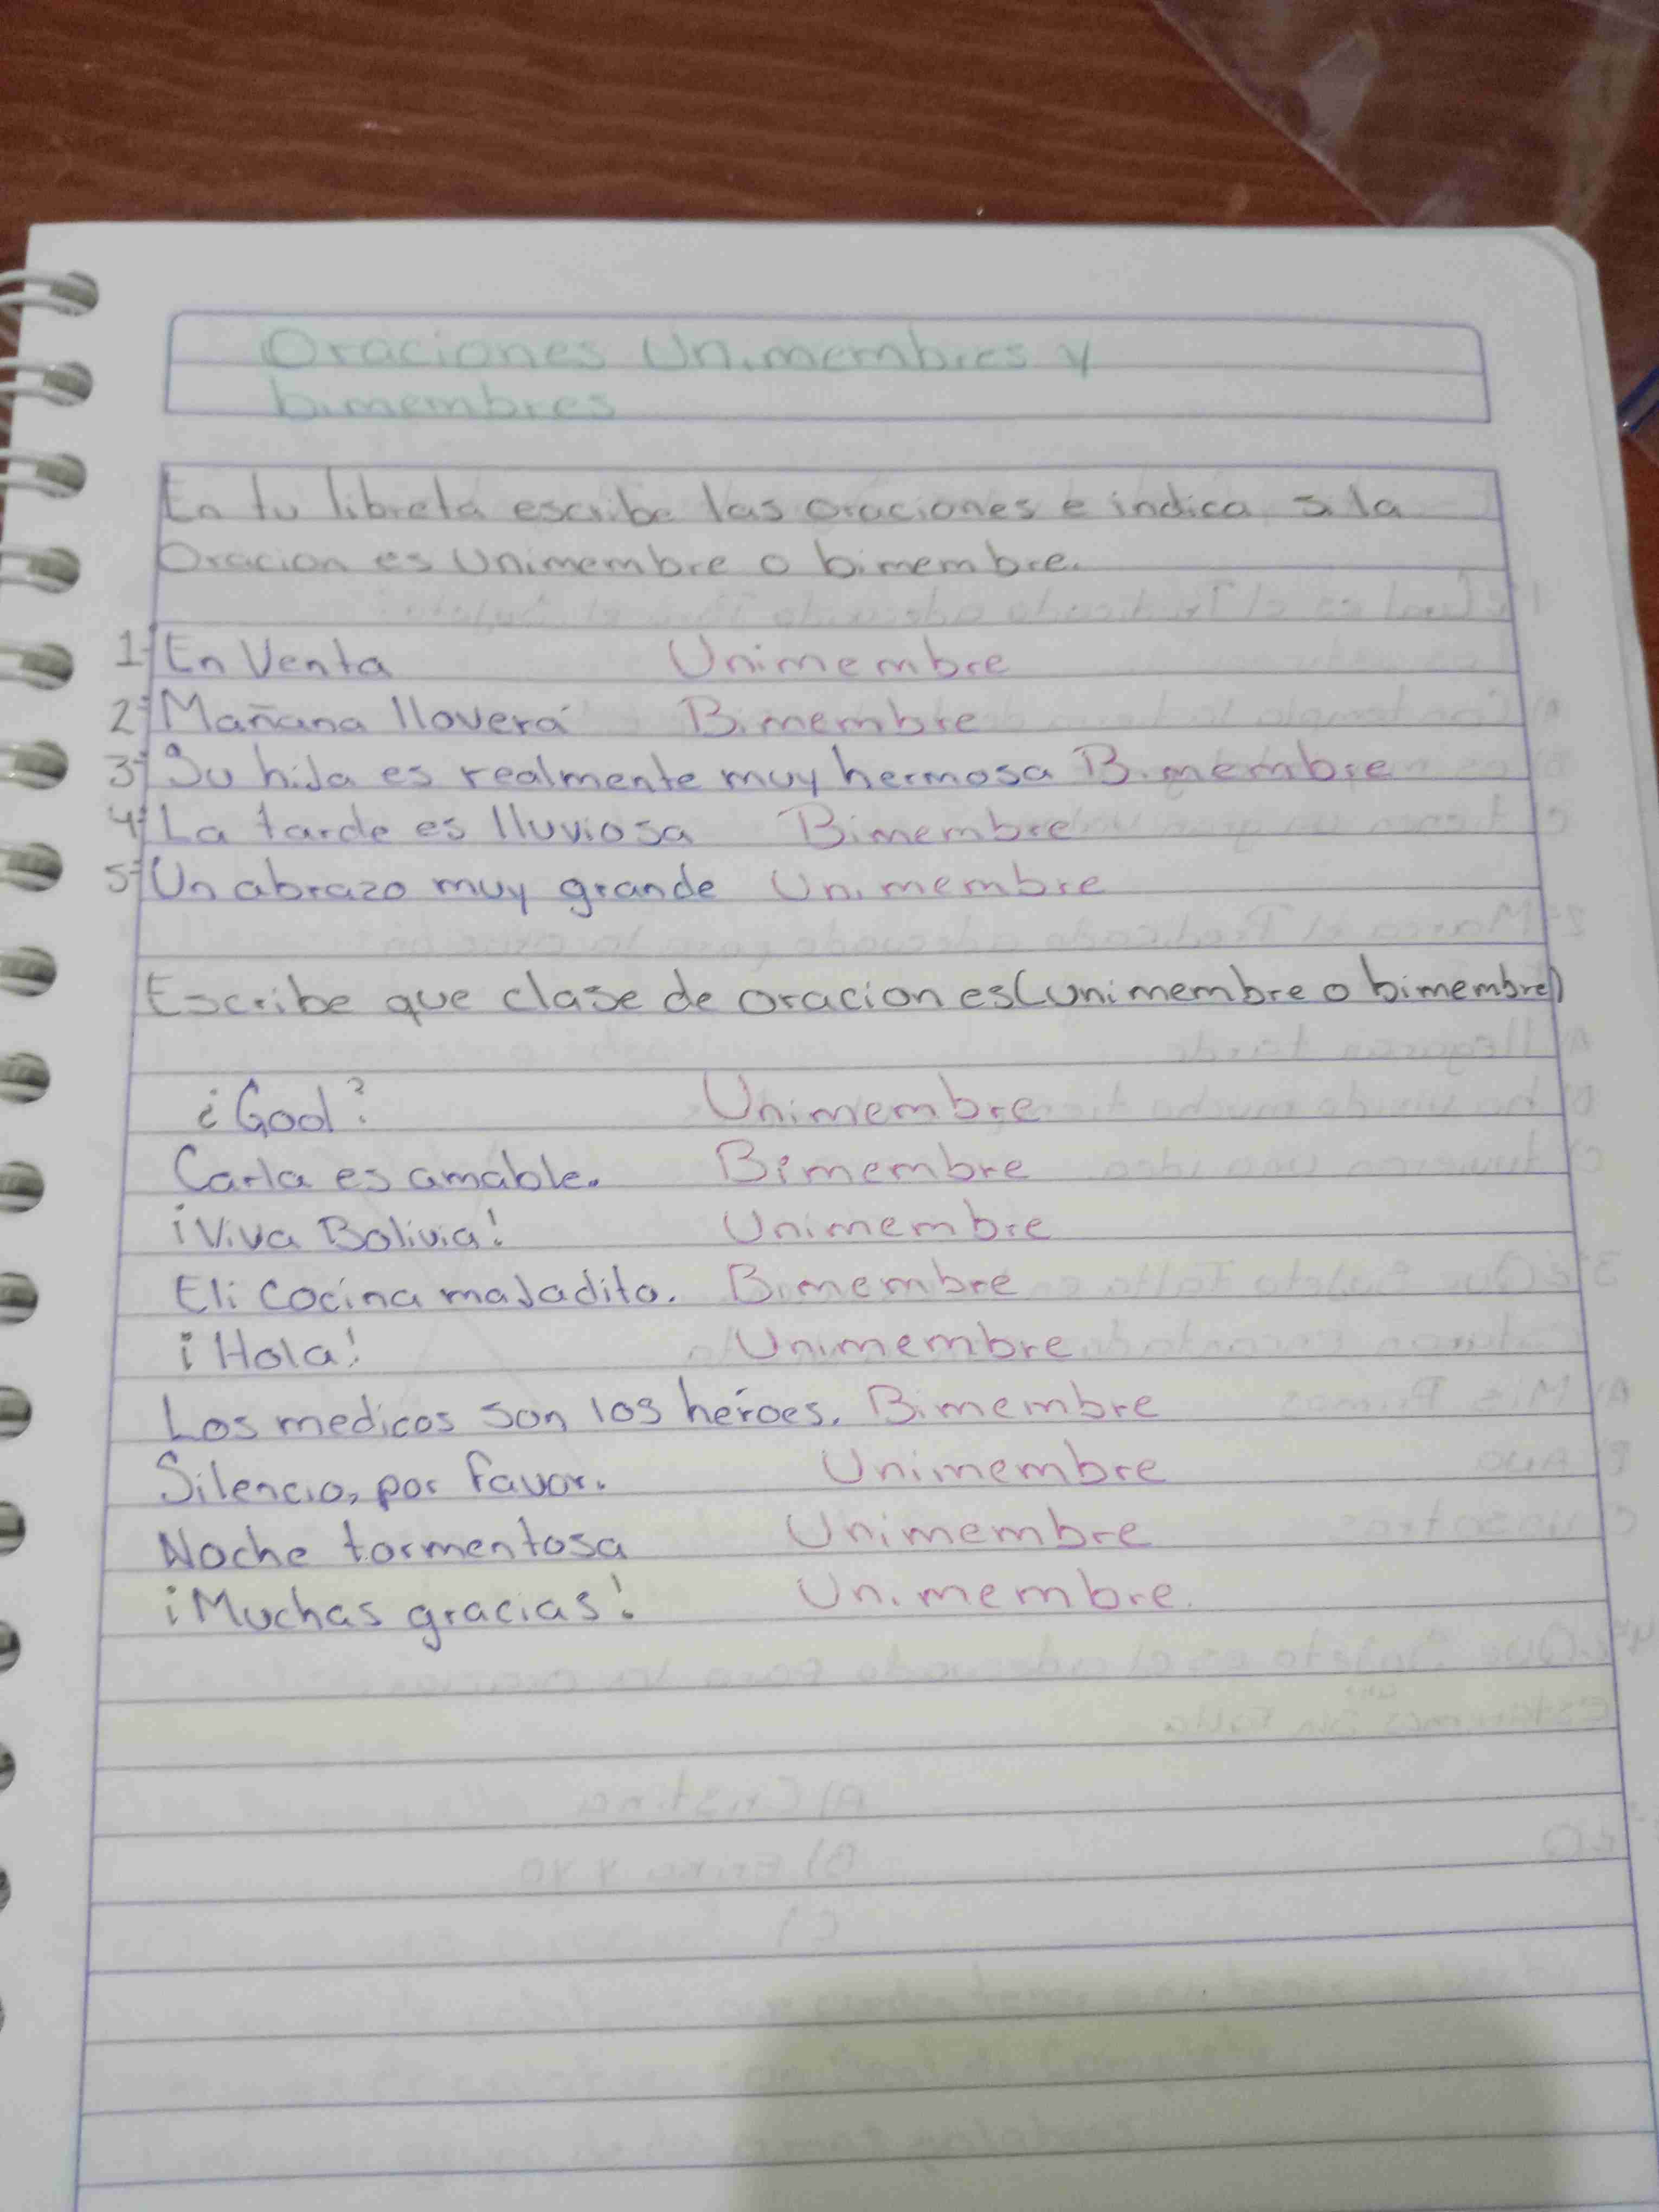 Oraciones Unimembres y
bimembres
En tu libreta escribe las oraciones e indica si la
Oracion es Unimembre o bimembre.
1- En Venta Unimembre
2- Mañana lloverá Bimembre
3- Su hija es realmente muy hermosa Bimembre
4- La tarde es lluviosa Bimembre
5- Un abrazo muy grande Unimembre
Escribe que clase de oracion es (unimembre o bimembre)
¿Gool? Unimembre
Carla es amable. Bimembre
¡Viva Bolivia! Unimembre
Eli cocina majadito. Bimembre
¡Hola! Unimembre
Los medicos son los héroes. Bimembre
Silencio, por favor. Unimembre
Noche tormentosa Unimembre
¡Muchas gracias! Unimembre.